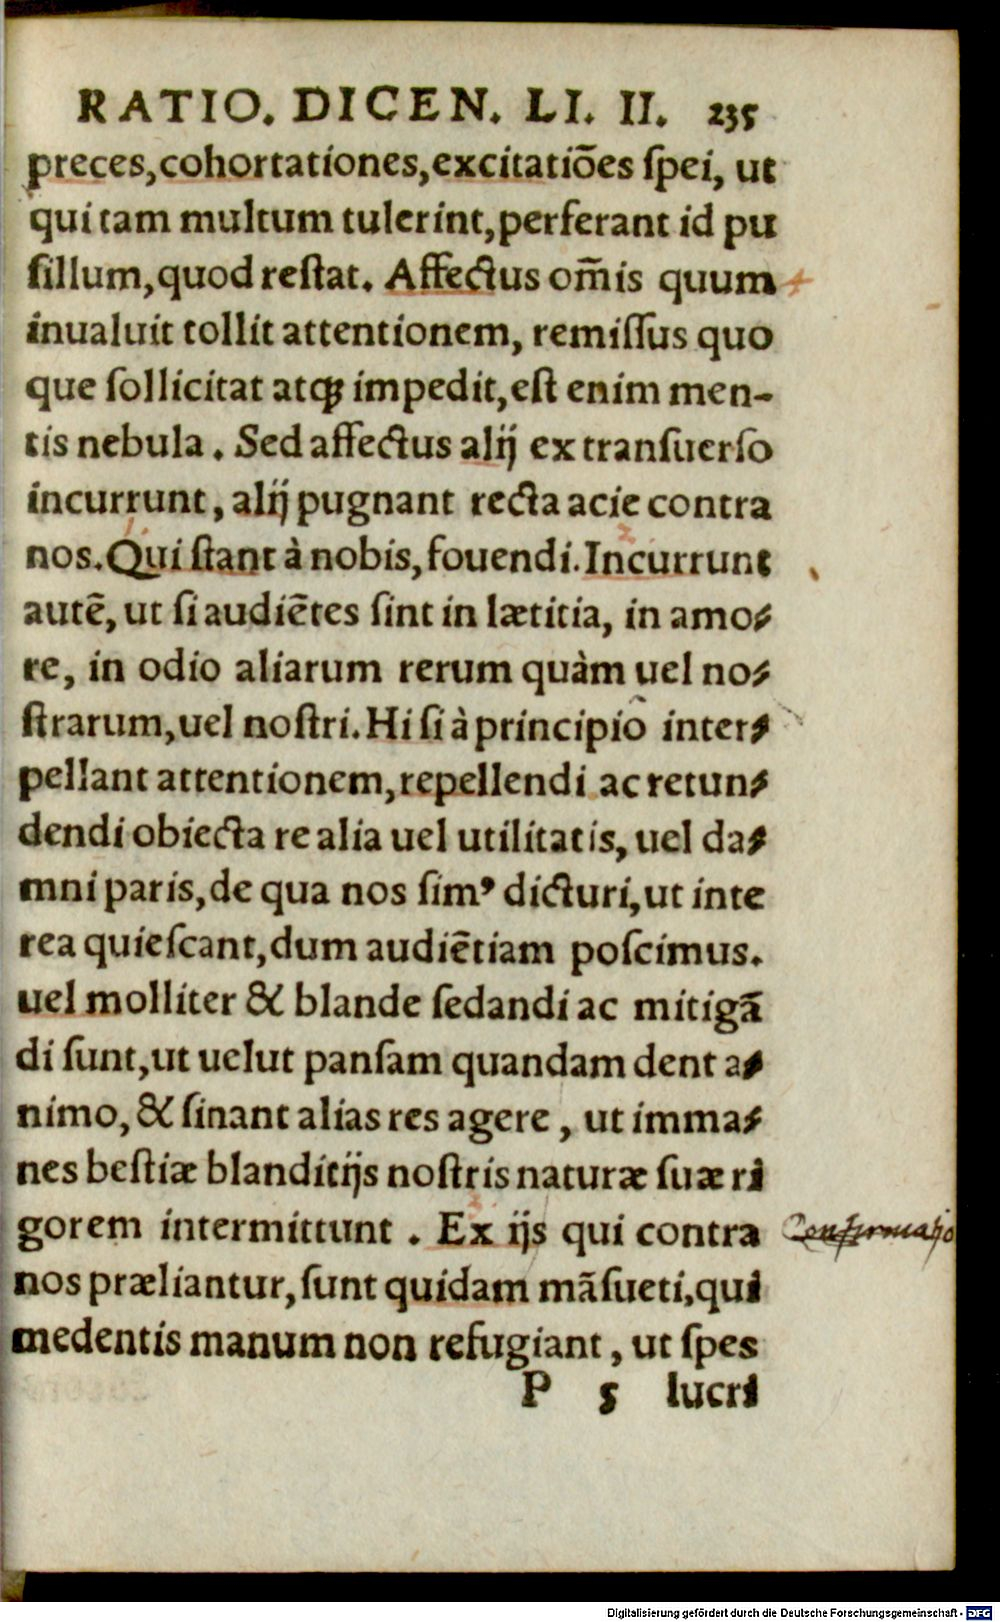 RATIO. DICEN. LI. II. 235
preces,cohortationes,excitatiões ſpei, ut
qui tam multum tulerint,perferant id pu
ſillum,quod reſtat. Affectus om̃is quum
inualuit tollit attentionem, remiſſus quo
que ſollicitat atꝙ impedit,eſt enim men-
tis nebula. Sed affectus alij ex transuerſo
incurrunt, alij pugnant recta acie contra
nos.Qui ſtant à nobis,fouendi.Incurrunt
autẽ, ut ſi audiẽtes ſint in lætitia, in amo⸗
re, in odio aliarum rerum quàm uel no⸗
ſtrarum,uel noſtri.Hi ſi à principio inter⸗
pellant attentionem,repellendi ac retun⸗
dendi obiecta re alia uel utilitatis, uel da⸗
mni paris,de qua nos ſimꝰ dicturi,ut inte
rea quieſcant,dum audiẽtiam poſcimus.
uel molliter & blande ſedandi ac mitigã
di ſunt,ut uelut panſam quandam dent a⸗
nimo, & ſinant alias res agere, ut imma⸗
nes beſtiæ blanditijs noſtris naturæ ſuæ ri
gorem intermittunt. Ex ijs qui contra
Confirmatio
nos præliantur,ſunt quidam mãſueti,qui
medentis manum non refugiant, ut ſpes
P 5 lucri
Digitalisierung gefördert durch die Deutsche Forschungsgemeinschaft - DFG